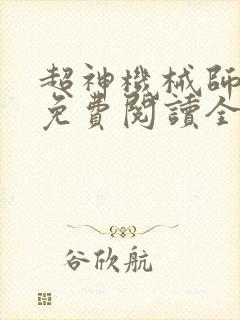 超神機械師
免費閱讀全
谷欣航